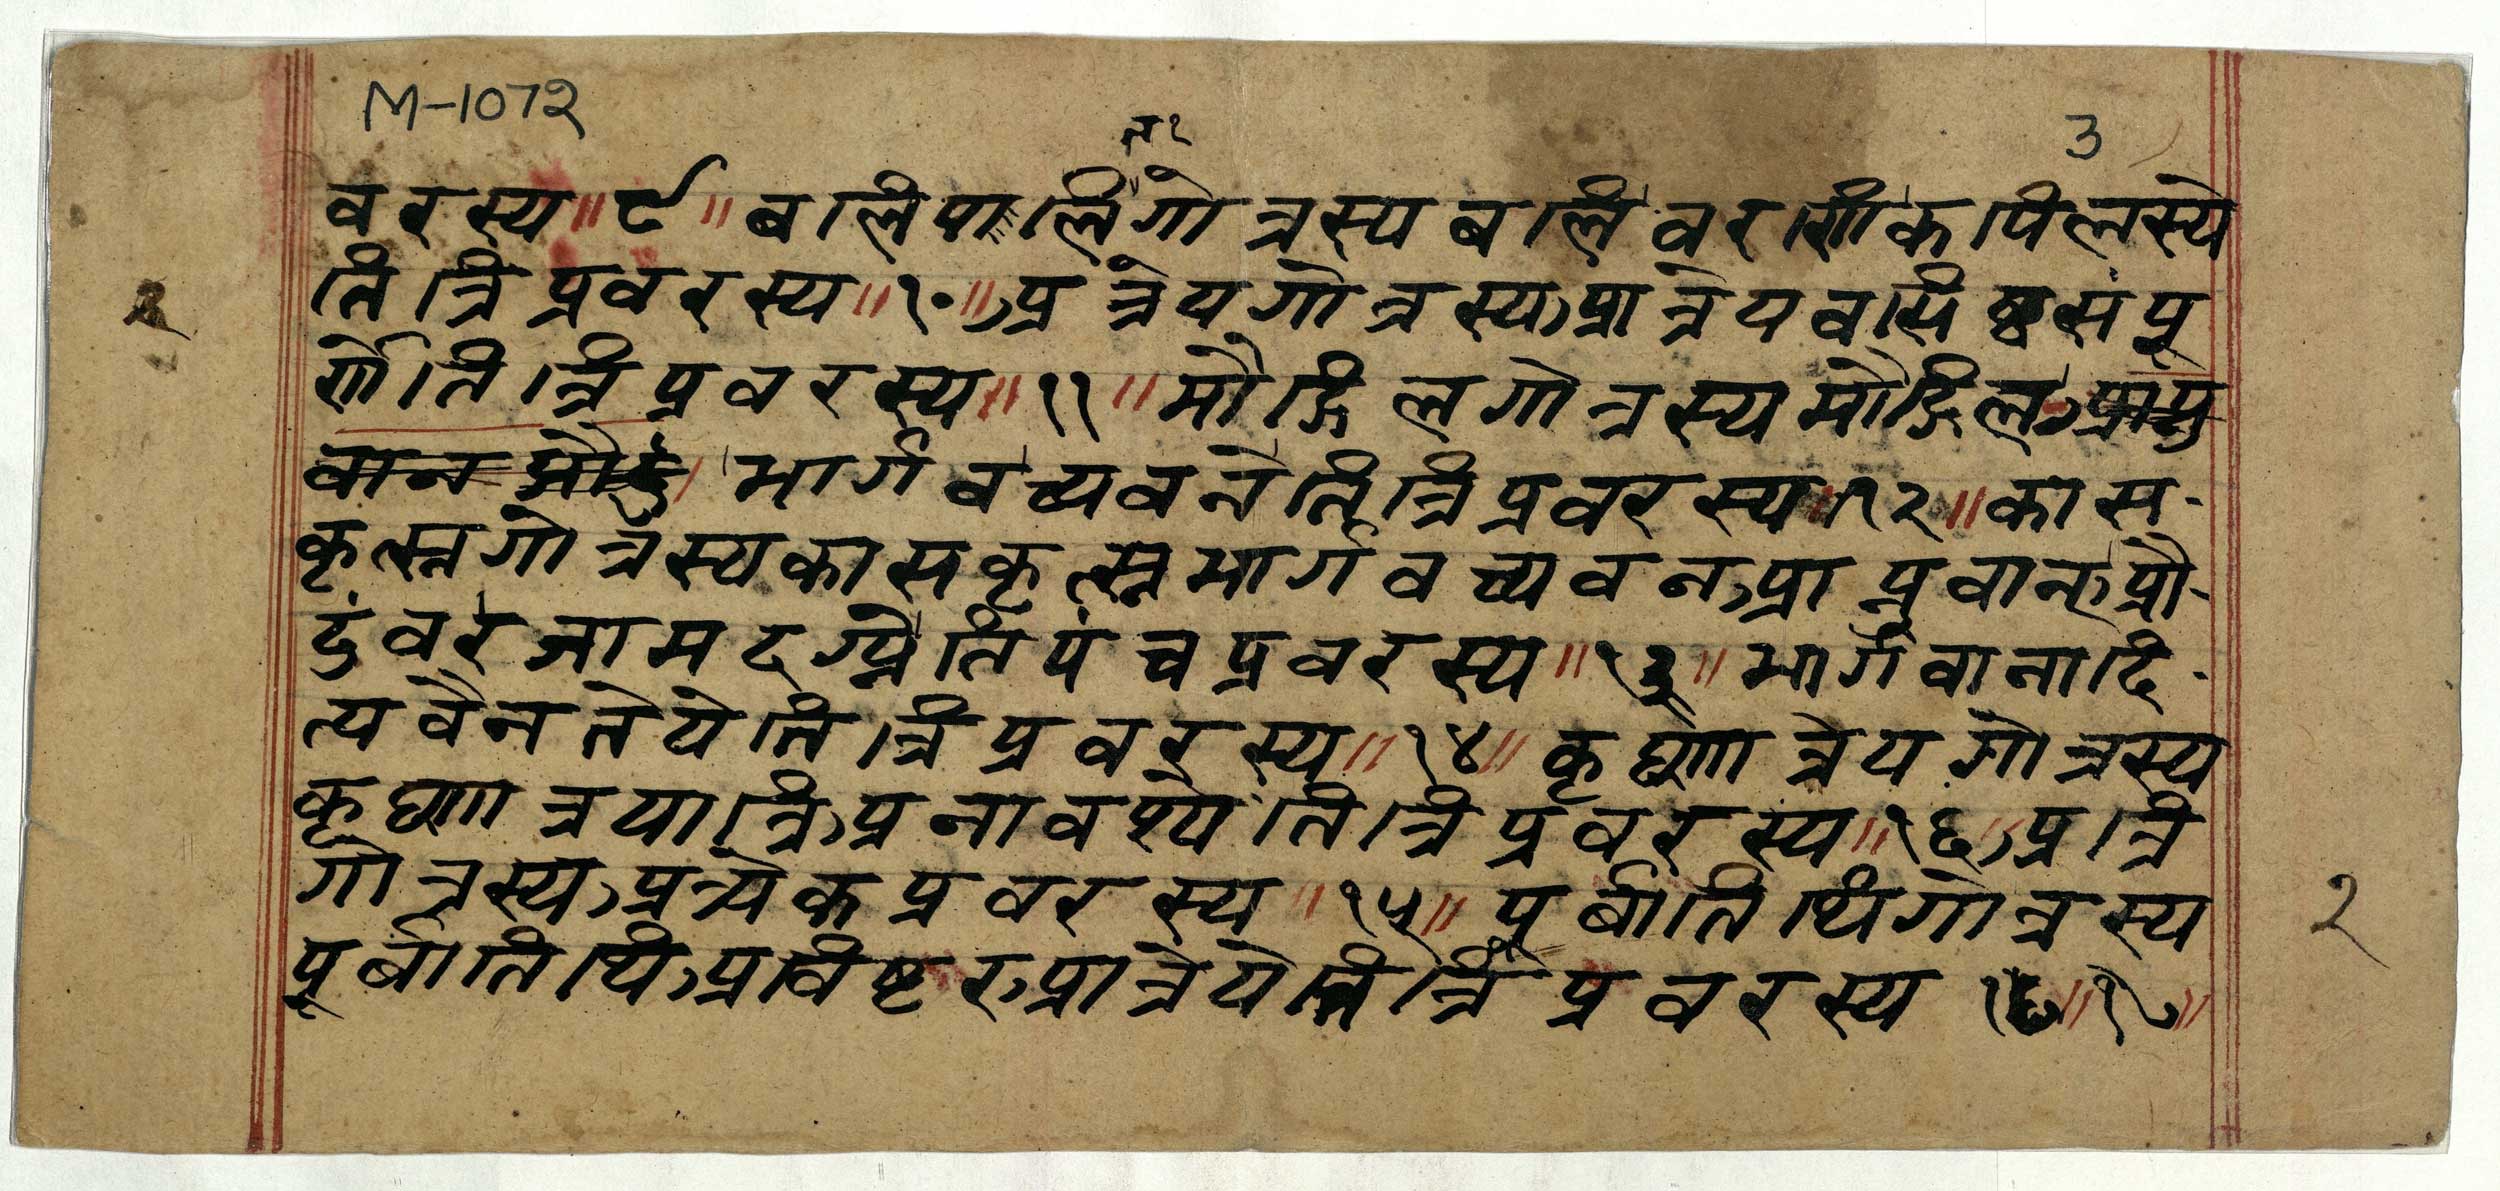 M-1072
3
त१
वरस्य॥९॥बलिपालिंगोत्रस्यबलिवरर्णिकपिलस्ये
तित्रिप्रवरस्य॥१०॥अत्रेयगोत्रस्यआत्रेयवसिष्ठसंपू
२
र्णेतित्रिप्रवरस्य॥११॥मौद्गिलगोत्रस्यमौद्गिल
भार्गवच्यवनेतित्रिप्रवरस्य॥१२॥कास-
कृत्स्नगोत्रस्यकासकृत्स्नभार्गवच्यवनआप्नुवानऔ-
दुंवरजामदग्न्येतिपंचप्रवरस्य॥१३॥भार्गवानादि-
त्यवैनतेयेतित्रिप्रवरस्य॥१४॥कृष्णात्रेयगोत्रस्य
कृष्णात्रयात्रिअनावश्येतित्रिप्रवरस्य॥१६॥अत्रि
गोत्रस्यअत्र्येकप्रवरस्य॥१५॥पूर्बातिथिगोत्रस्य
२
पूर्बातिथिअविष्टरुआत्रेयेतित्रिप्रवरस्य॥१७॥